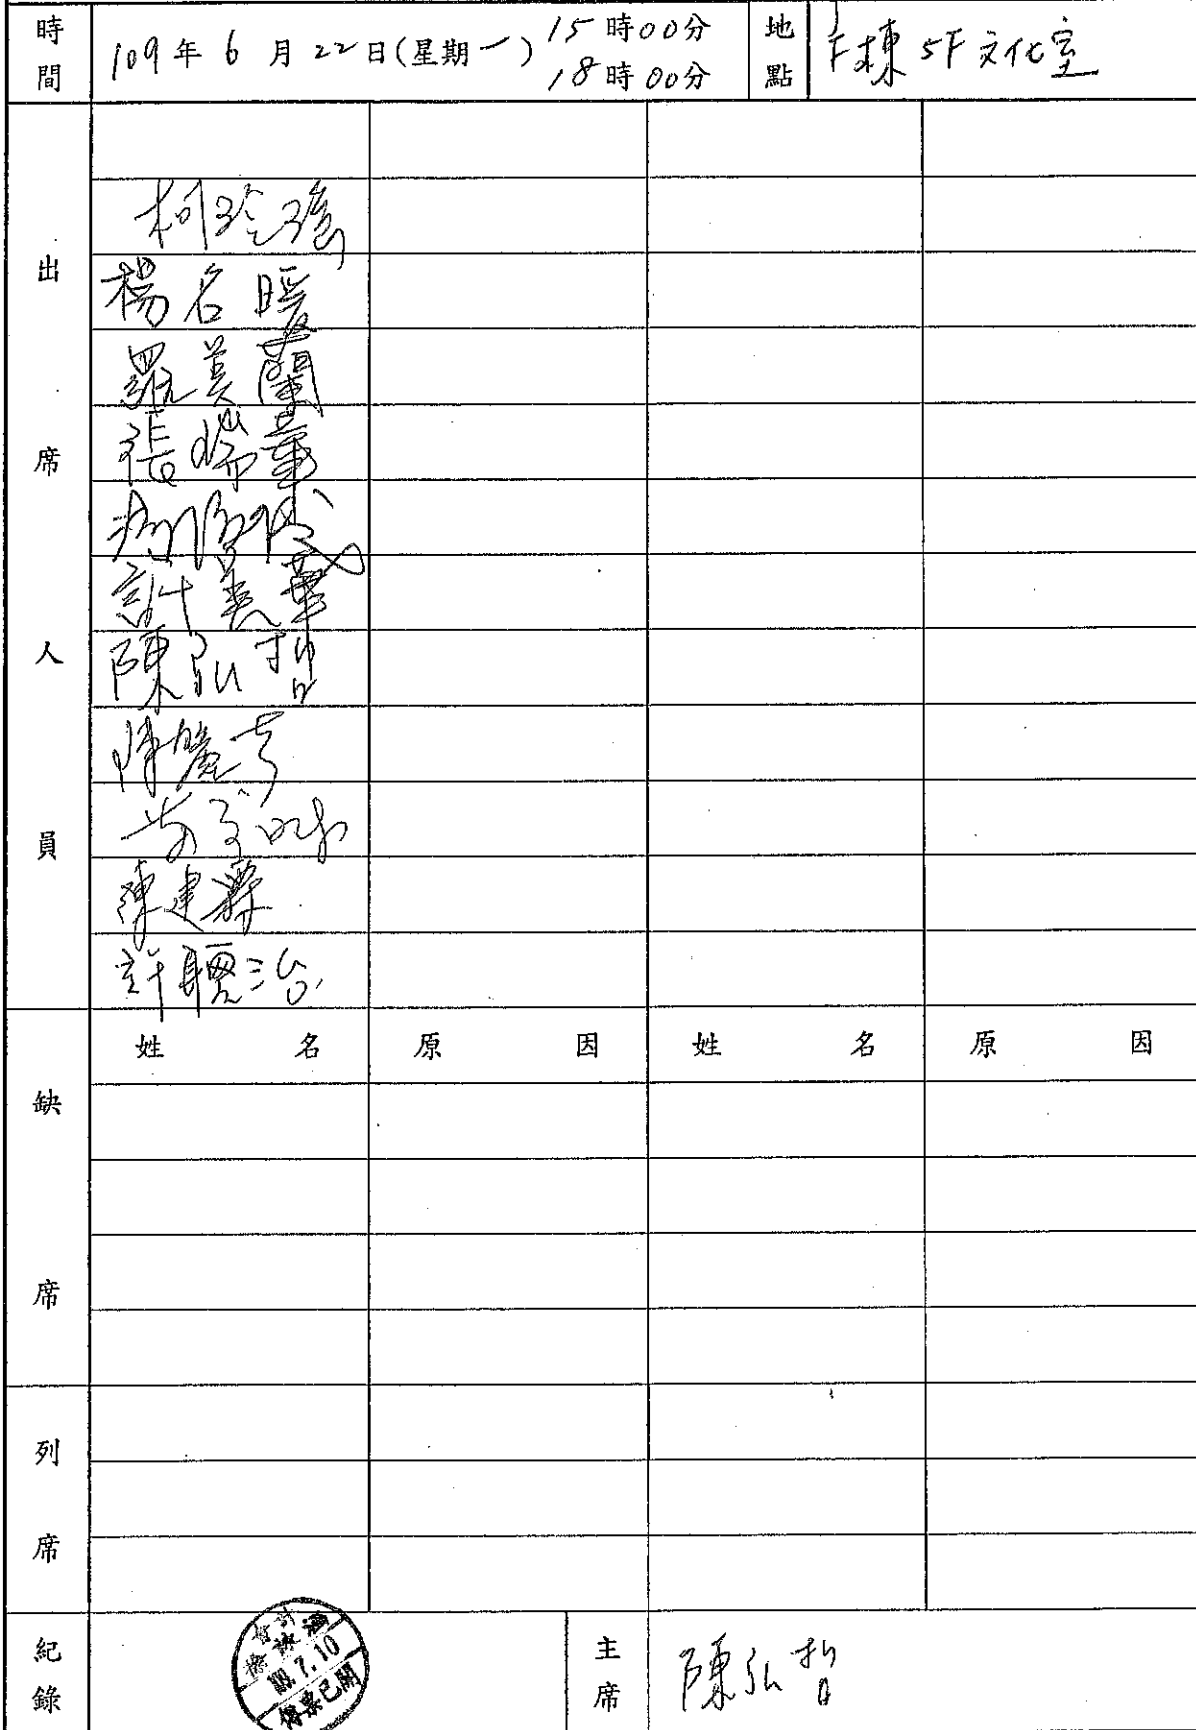 時間 109年 6 月 22日(星期一) 15時00分 18時00分 地點 F棟 5F 文化室
出席人員
楊名暖
羅美蘭
張瑞華
許美華
陳弘哲
陳建霖
許聰治
姓名 原因 姓名 原因
缺席
列席
紀錄
109.7.10
傳票已開
主席 陳弘哲